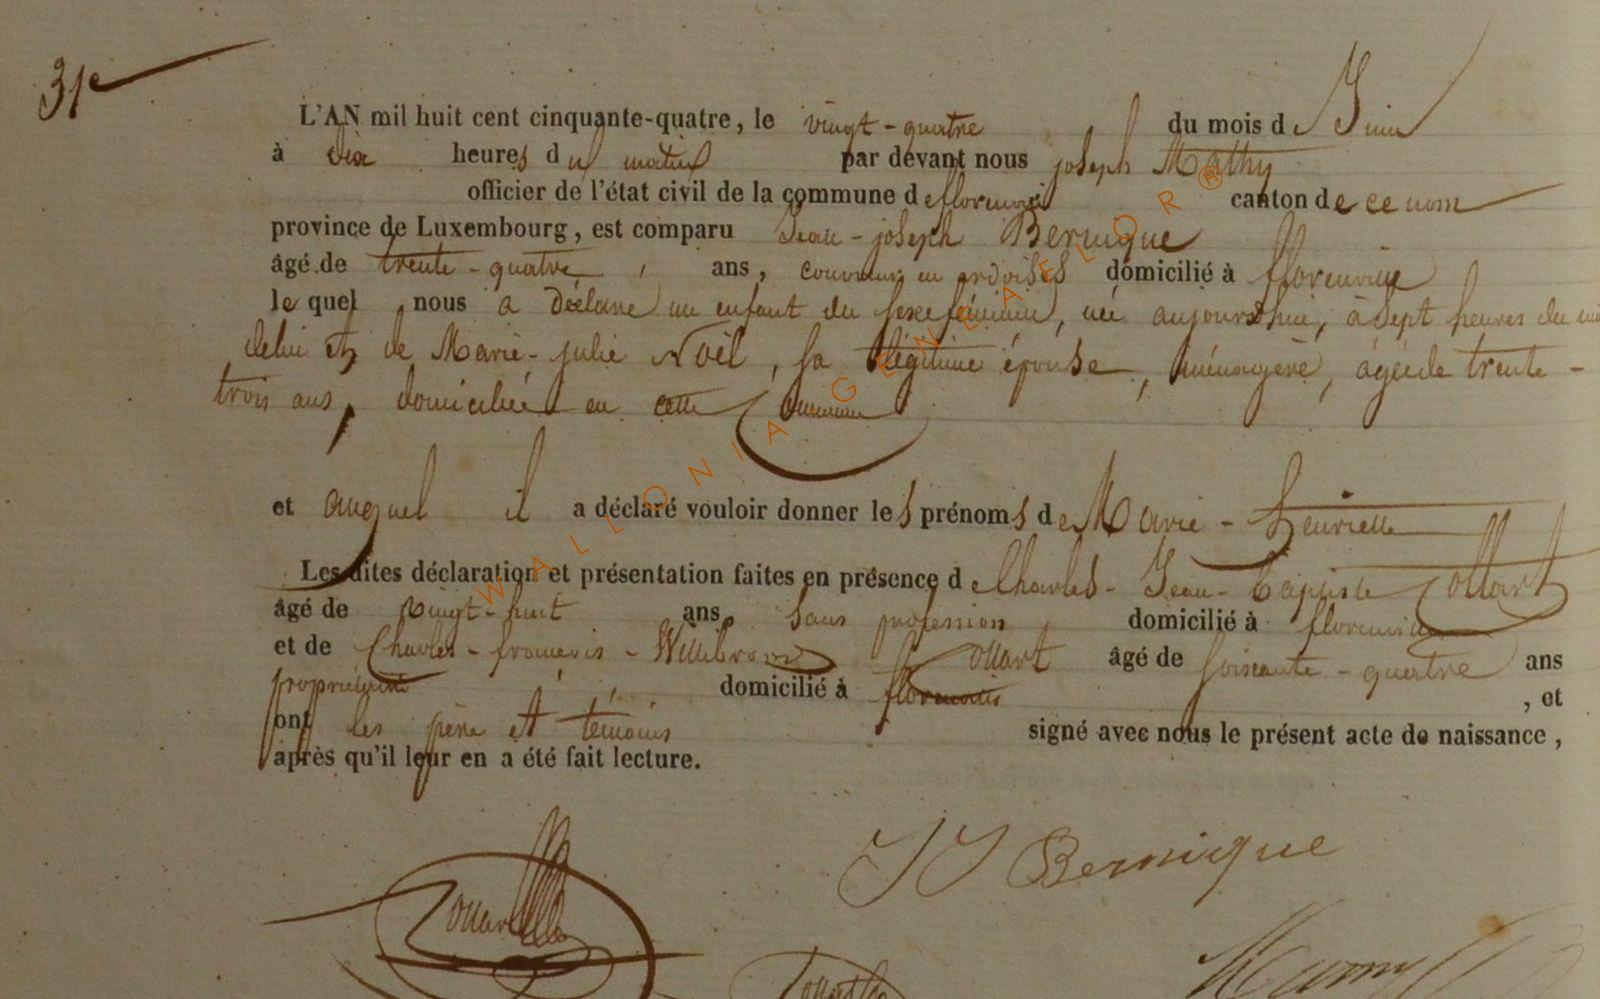 31e
L'AN mil huit cent cinquante-quatre, le vingt-quatre du mois de Juin
à dix heures du matin par devant nous joseph Mathy
officier de l'état civil de la commune de florenville canton de ce nom
province de Luxembourg, est comparu Jean-joseph Bernique
âgé de trente-quatre ans, couvreur en ardoises domicilié à florenville
le quel nous a déclaré un enfant du sexe féminin, née aujourd'hui, à sept heures du
de lui et de Marie-julie Noël, sa légitime épouse, ménagère, âgée de trente-
trois ans, domiciliée en cette Commune
et auquel il a déclaré vouloir donner les prénoms de Marie-henriette
Les dites déclaration et présentation faites en présence de Charles-Jean-Baptiste Collart
âgé de vingt-huit ans, sans profession domicilié à florenville
et de Charles-françois-Willibrord Collart âgé de soixante-quatre ans
propriétaire domicilié à florenville, et
ont les père et témoins signé avec nous le présent acte de naissance,
après qu'il leur en a été fait lecture.
JJ Bernique
Collart
WALLONIA-GENEALOR®